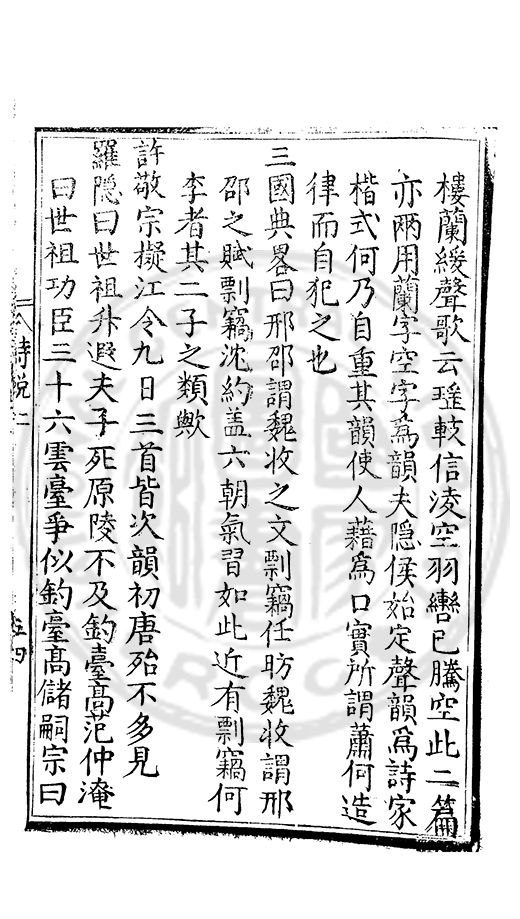 樓蘭緩聲歌云瑤軑信淩空羽轡已騰空此二篇
亦兩用蘭字空字為韻夫隠侯始定聲韻為詩家
楷式何乃自重其韻使人藉為口實所謂蕭何造
律而自犯之也
三國典畧曰邢邵謂魏收之文剽竊任昉魏收謂邢
邵之賦剽竊沈約盖六朝氣習如此近有剽竊何
李者其二子之類歟
許敬宗擬江令九日三首皆次韻初唐殆不多見
羅隠曰世祖升遐夫子死原陵不及釣臺高范仲淹
曰世祖功臣三十六雲臺爭似釣臺高儲嗣宗曰
詩説二